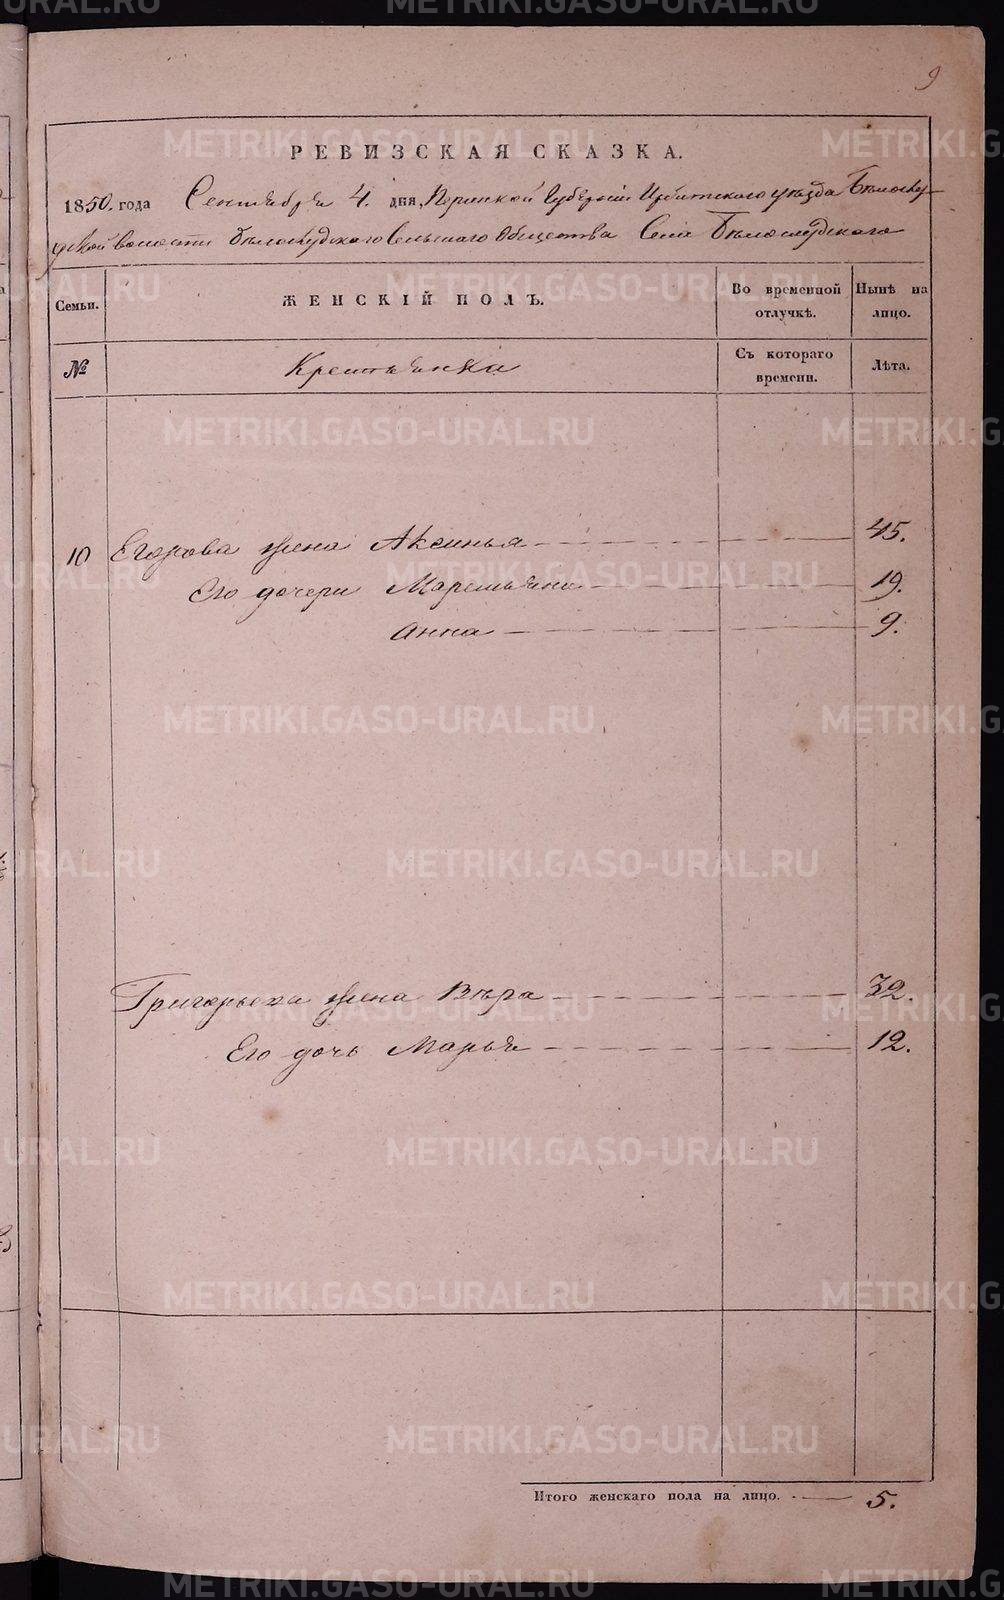 9
РЕВИЗСКАЯ СКАЗКА.
1850. года Сентября 4. дня, Пермской Губернии Ирбитского уѣзда Бѣлослу-
дской волости Бѣлослудского Сельскаго Общества Села Бѣлослудского
Семьи. ЖЕНСКІЙ ПОЛЪ. Во временной отлучкѣ. Нынѣ на лицо.
№ Крестьянки Съ котораго времени. Лѣта.
10 Егорова жена Аксинья 45.
Его дочери Маремьяна 19.
Анна 9.
Григорьева жена Вѣра 32.
Его дочь Марья 12.
Итого женскаго пола на лицо. 5.
METRIKI.GASO-URAL.RU